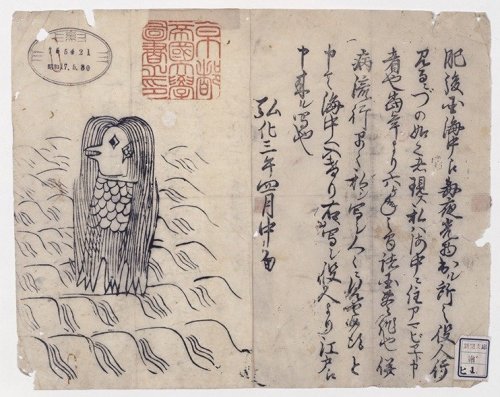 肥後国海中え毎夜光物出ル所之役人行
見るニづの如く者現ス私ハ海中ニ住アマビヱト申
者也当年より六ヶ年之間諸国豊作也併
病流行早々私シ写シ人々ニ見セ候得と
申て海中へ入けり右ハ写シ役人より江戸え
申来ル写也
弘化三年四月中旬
京都
帝國大學
圖書之印
165421
昭和17.5.30